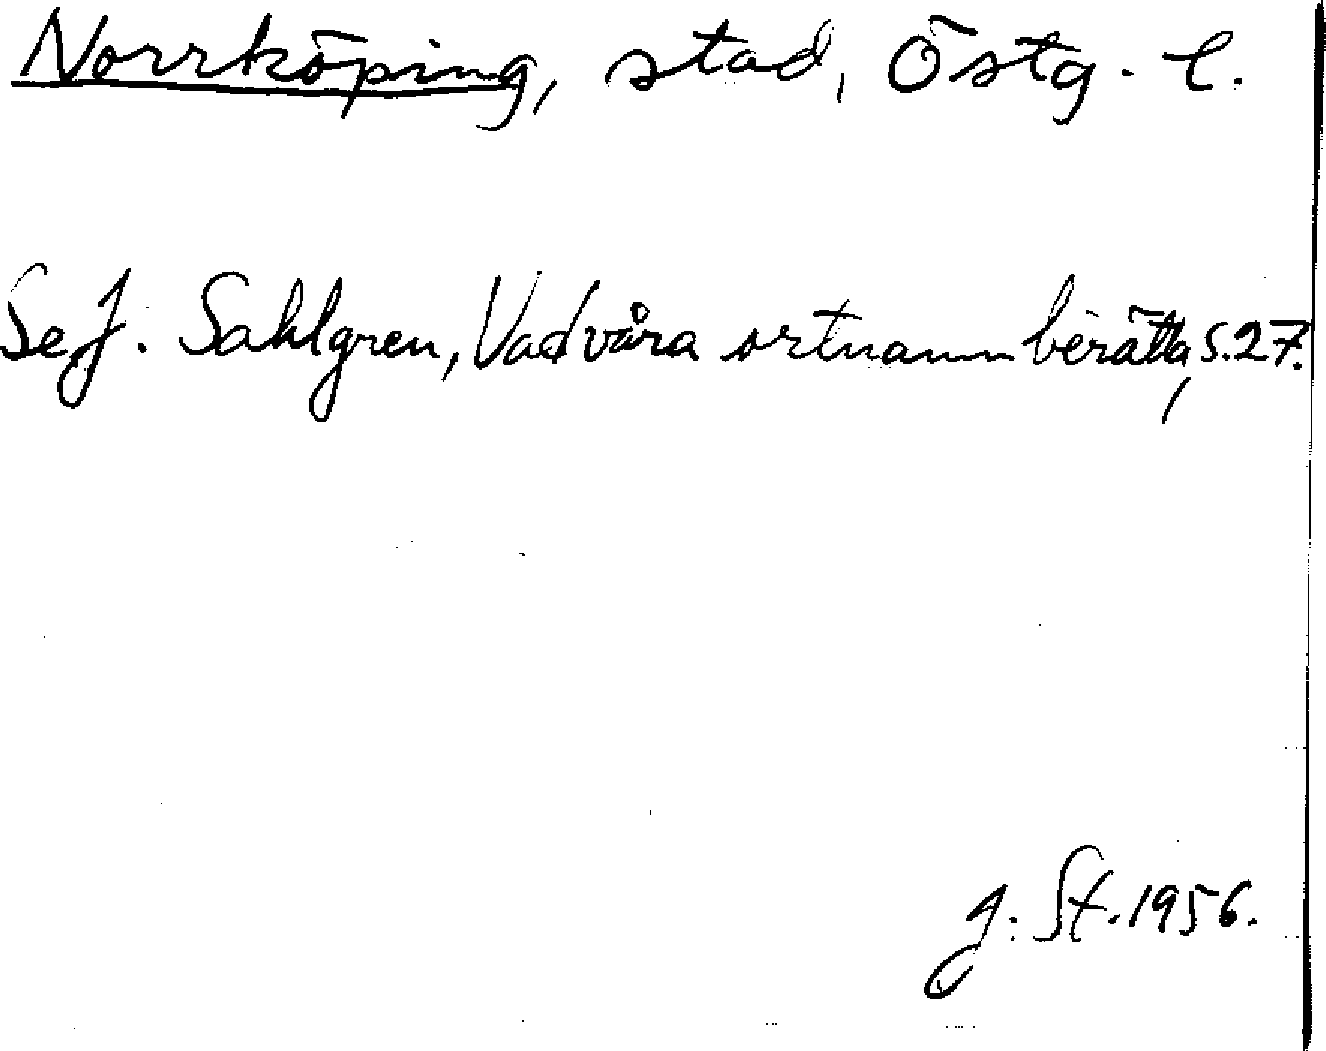 Norrköping, stad, Östg. l.
Se J. Sahlgren, Vad våra ortnamn berätta, s. 27.
J. St. 1956.